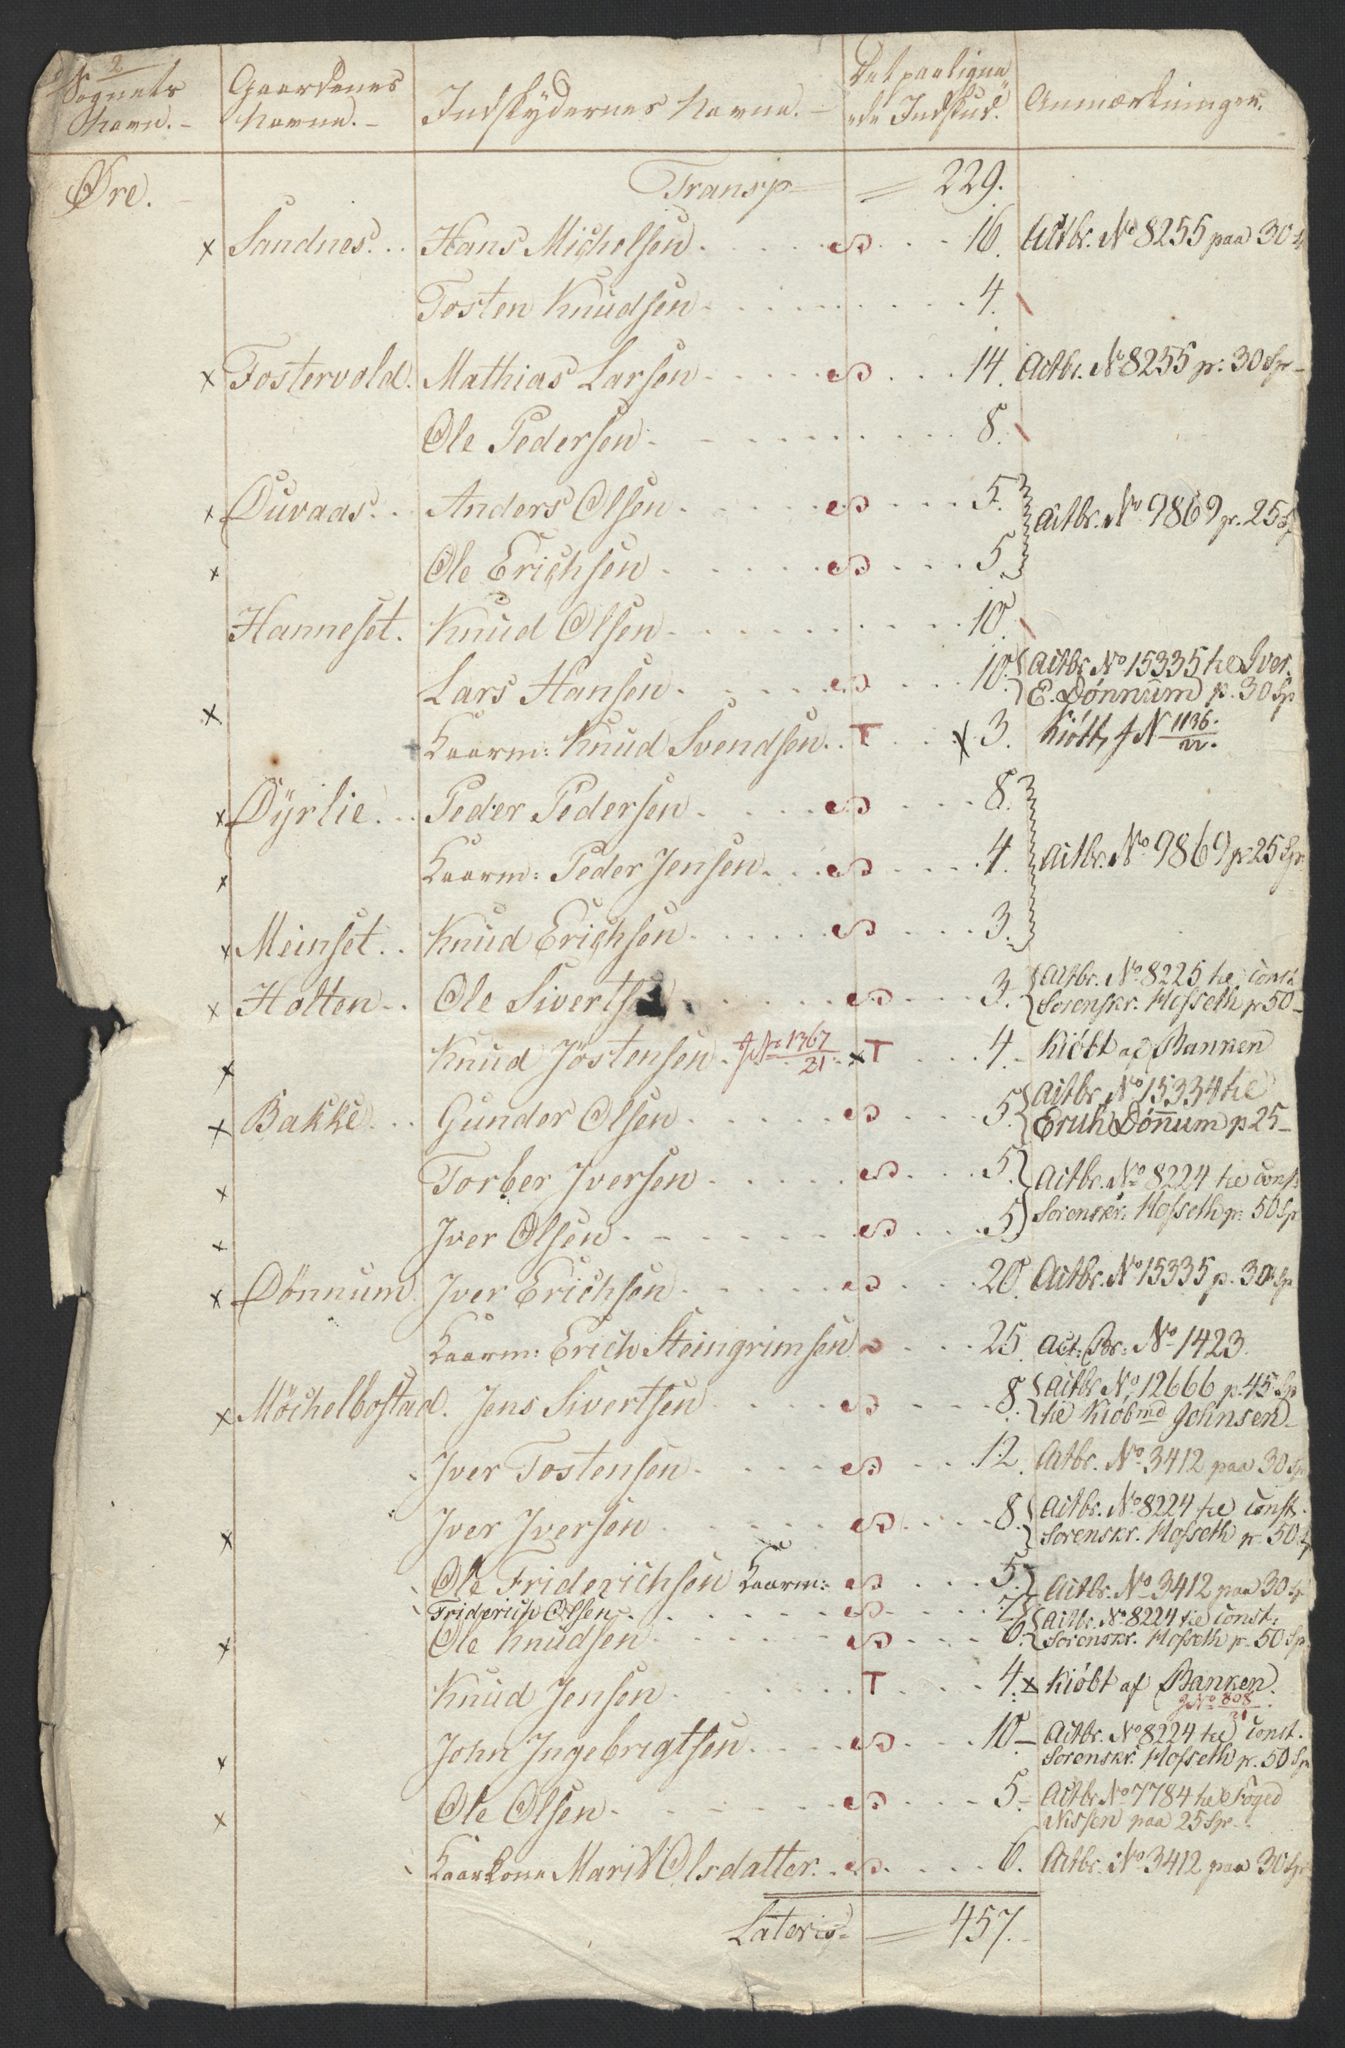 2
Sognets Navn. - Gaardenes Navne. - Indskydernes Navne. - Det paalignede Indskud. Anmærkninger.
Øre. Transp = 229.
x Sandnes. Hans Michelsen 16. Actbr. No 8255 paa 30
Tosten Knudsen 4.
x Tostervold. Mathias Larsen 14. Actbr. No 8255 pr: 30 Sp
Ole Pedersen 8.
x Duvaas. Anders Olsen 5. Actbr. No 9869 pr. 25 Sp
x Ole Erichsen 5.
Hanneset. Knud Olsen 10.
Lars Hansen 10. Actbr No 15335 til Iver E. Dønnum p. 30 Sp
x Kaarm: Knud Svendsen. T x 3. Kiøbt, J N 1136/22.
x Dÿrlie. Peder Pedersen 8.
x Kaarm: Peder Jensen. 4. Actbr. No 9869 pr 25 Sp
x Meinset. Knud Erichsen 3.
x Holten. Ole Sivertsen 3. Actbr. No 8225 til const. Sorenskr. Hofseth p 50
x Knud Jöstensen J No 1367/21. x T 4. Kiøbt af Banken
x Bakke. Gunder Olsen 5. Actbr No 15334 til Erich Dønnum p 25
x Torber Iversen 5. Actbr. No 8224 til const.
x Iver Olsen 5. Sorenskr: Hofseth p: 50 Sp
x Dönnum Iver Erichsen 20. Actbr. No 15335 p. 30 Sp
Kaarm: Erich Steingrimsen 25. Act: Br: No 1423.
x Möchelbostad. Jens Sivertsen 8. Actbr No 12666 p. 45 Sp til Kiøbmd Johnsen
Iver Tostensen 12. Actbr. No 3412 paa 30 Sp
x Iver Iversen 8. Actbr. No 8224 til const. Sorenskr. Hofseth p. 50
Ole Friderichsen Kaarm: 5. Actbr. No 3412 paa 30
Friderich Olsen 7.
x Ole Knudsen 6. Actbr. No 8224 til const: Sorenskr. Hofseth p. 50 Sp
Knud Jensen T 4. x Kiøbt af Banken. J No 808/21
x John Ingebrigtsen 10. Actbr. No 8224 til const. Sorenskr. Hofseth p. 50 Sp
x Ole Olsen 5. Actbr No 7784 til Foged Nissen paa 25 Sp
Kaarkone Marit Olsdatter. 6. Actbr. No 3412 paa 30 Sp
Lateris = 457.